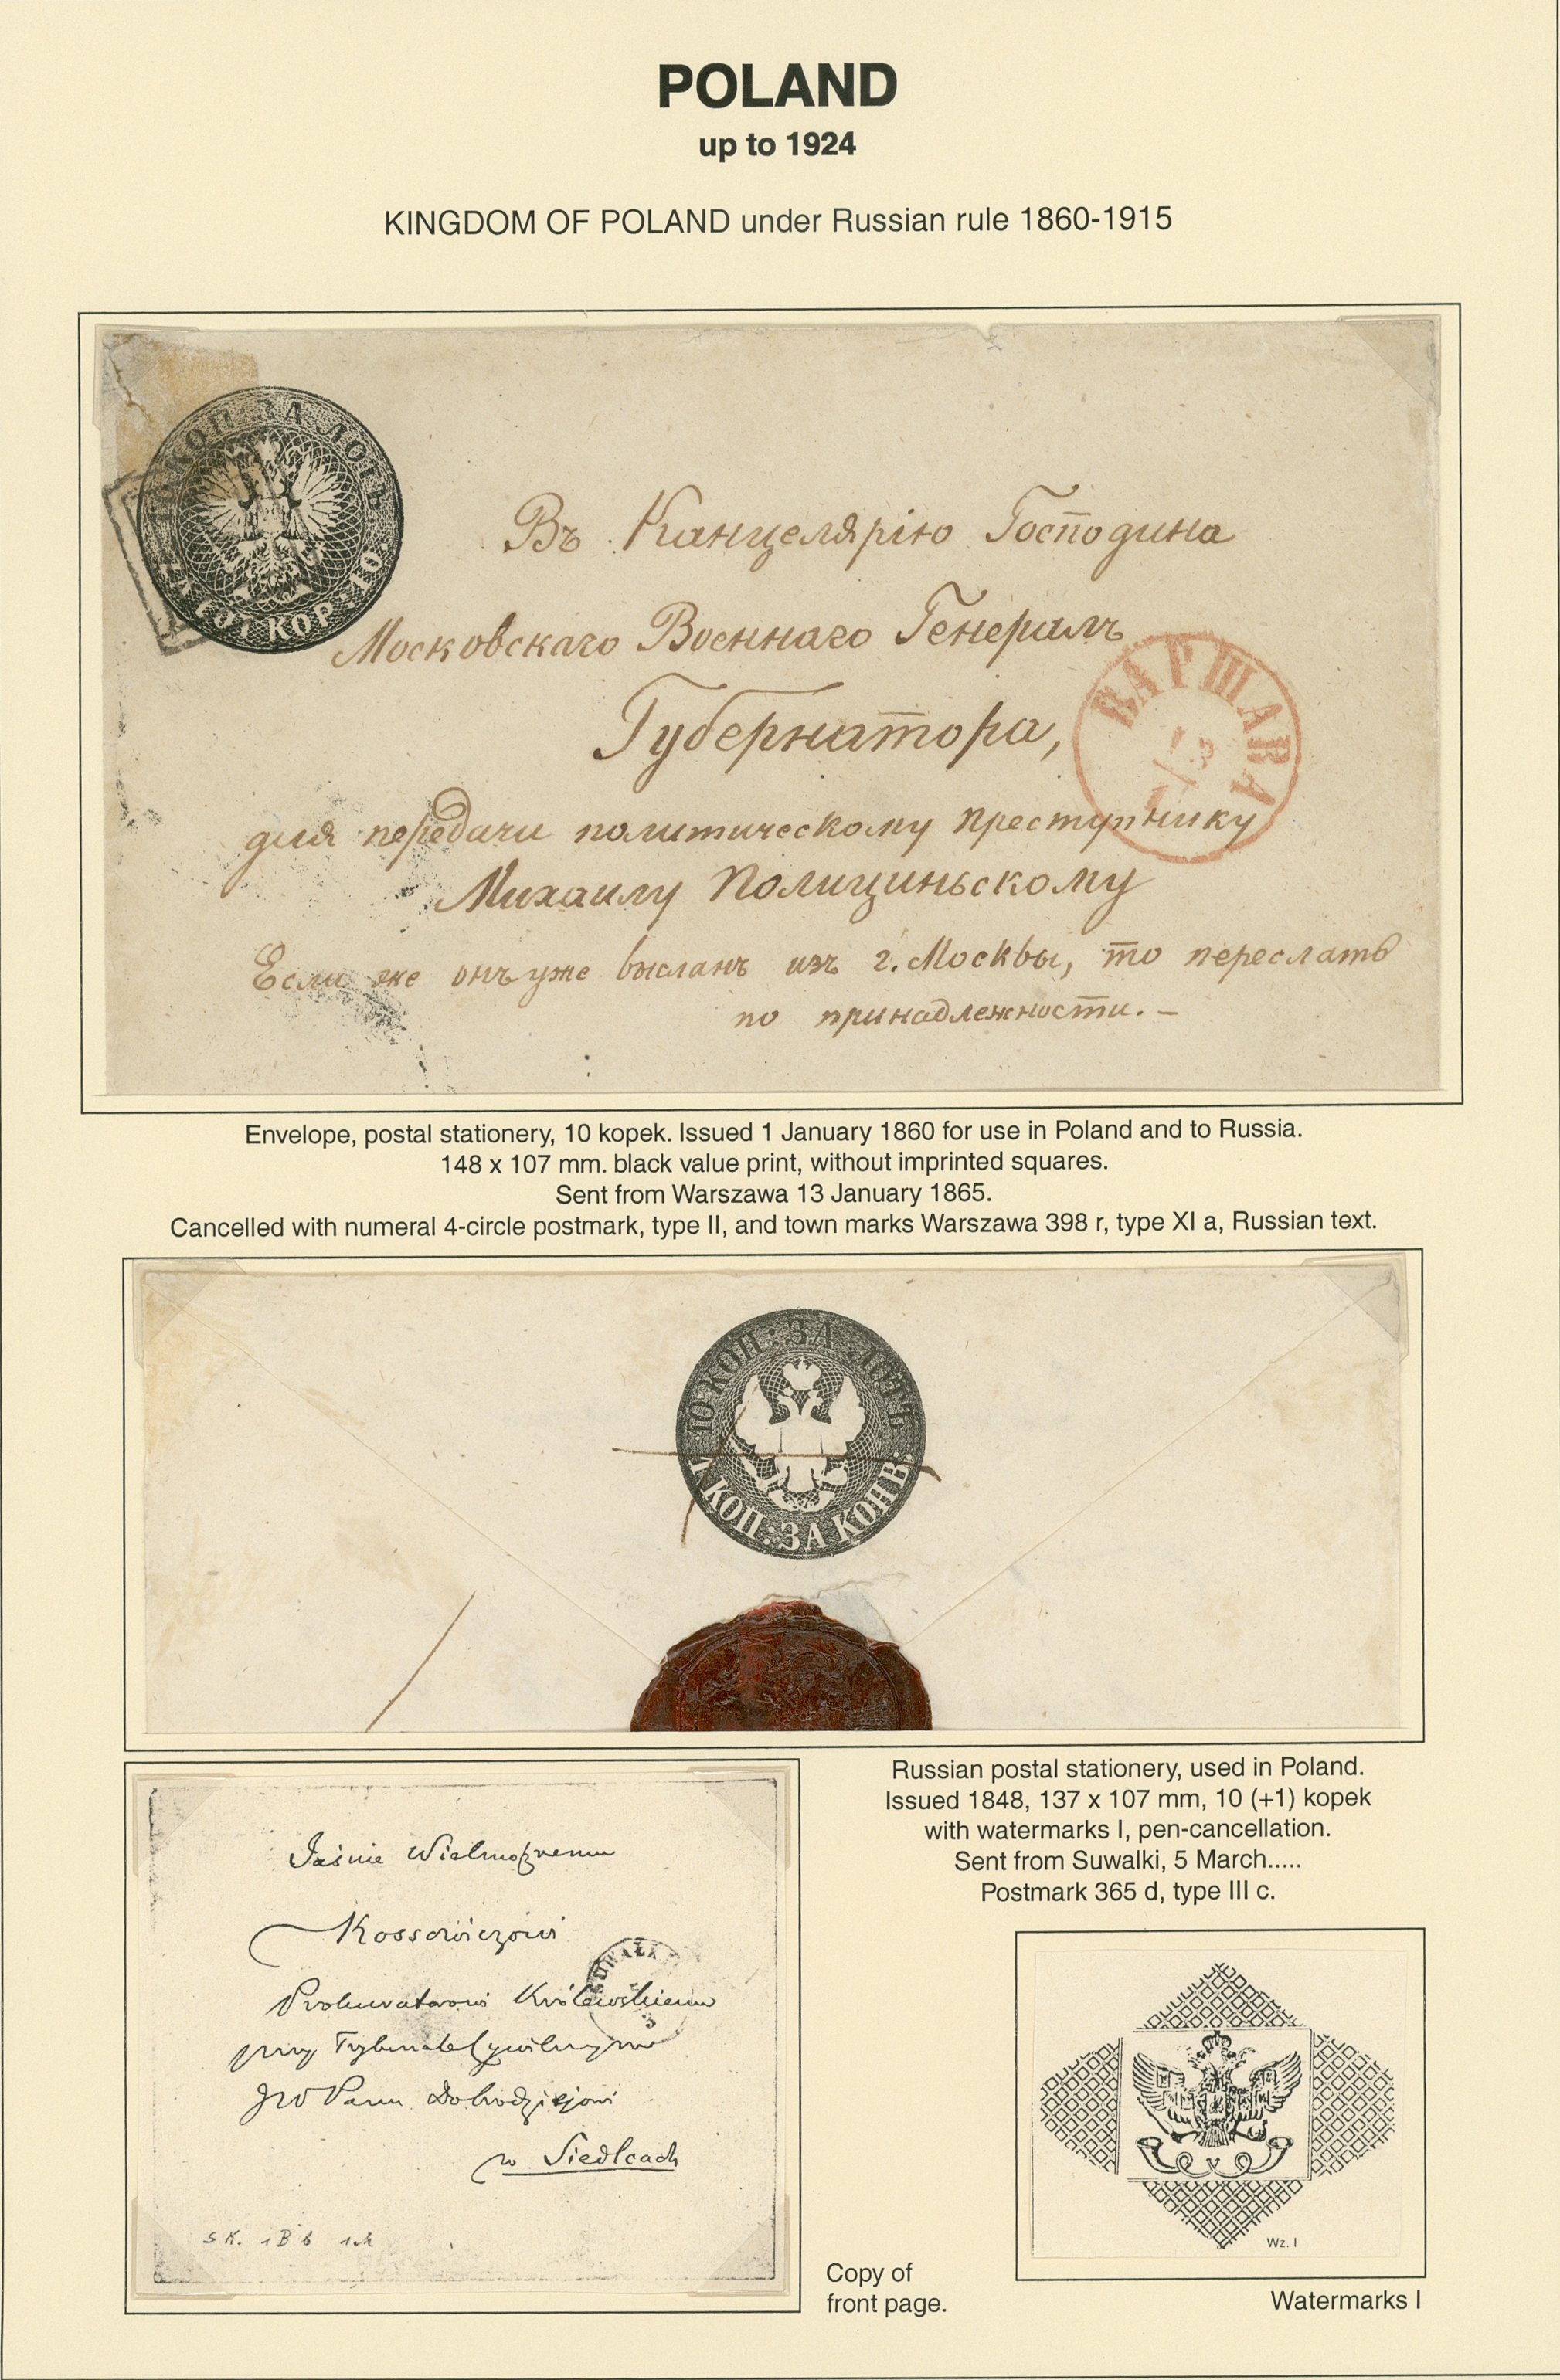 POLAND
up to 1924
KINGDOM OF POLAND under Russian rule 1860-1915
10 КОП ЗА ЛОТЪ
ZA ŁÓT KOP. 10.
Въ Канцелярію Господина
Московскаго Военнаго Генералъ
Губернатора,
ВАРШАВА
1/3
для передачи политическому преступнику
Михаилу Полициньскому
Если же онъ уже высланъ изъ г. Москвы, то переслать
по принадлежности. —
Envelope, postal stationery, 10 kopek. Issued 1 January 1860 for use in Poland and to Russia.
148 x 107 mm. black value print, without imprinted squares.
Sent from Warszawa 13 January 1865.
Cancelled with numeral 4-circle postmark, type II, and town marks Warszawa 398 r, type XI a, Russian text.
10 КОП: ЗА ЛОТЪ
1 КОП: ЗА КОНВ:
Russian postal stationery, used in Poland.
Issued 1848, 137 x 107 mm, 10 (+1) kopek
with watermarks I, pen-cancellation.
Sent from Suwalki, 5 March.....
Postmark 365 d, type III c.
Jaśnie Wielmożnemu
Kossowiczowi
SUWAŁK
3
Prokuratorowi Królewskiemu
przy Trybunale Cywilnym
JW Panu Dobrodziejowi
w Siedlcach
S K. 1 B b
Wz. I
Copy of
front page.
Watermarks I